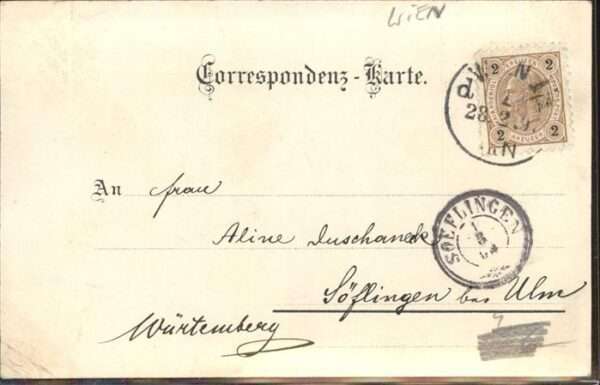 WIEN
Correspondenz-Karte.
2 2
WIEN
28
2 2
An Frau
Aline Duschaneck
SOEFLINGEN
Söflingen bei Ulm
Württemberg